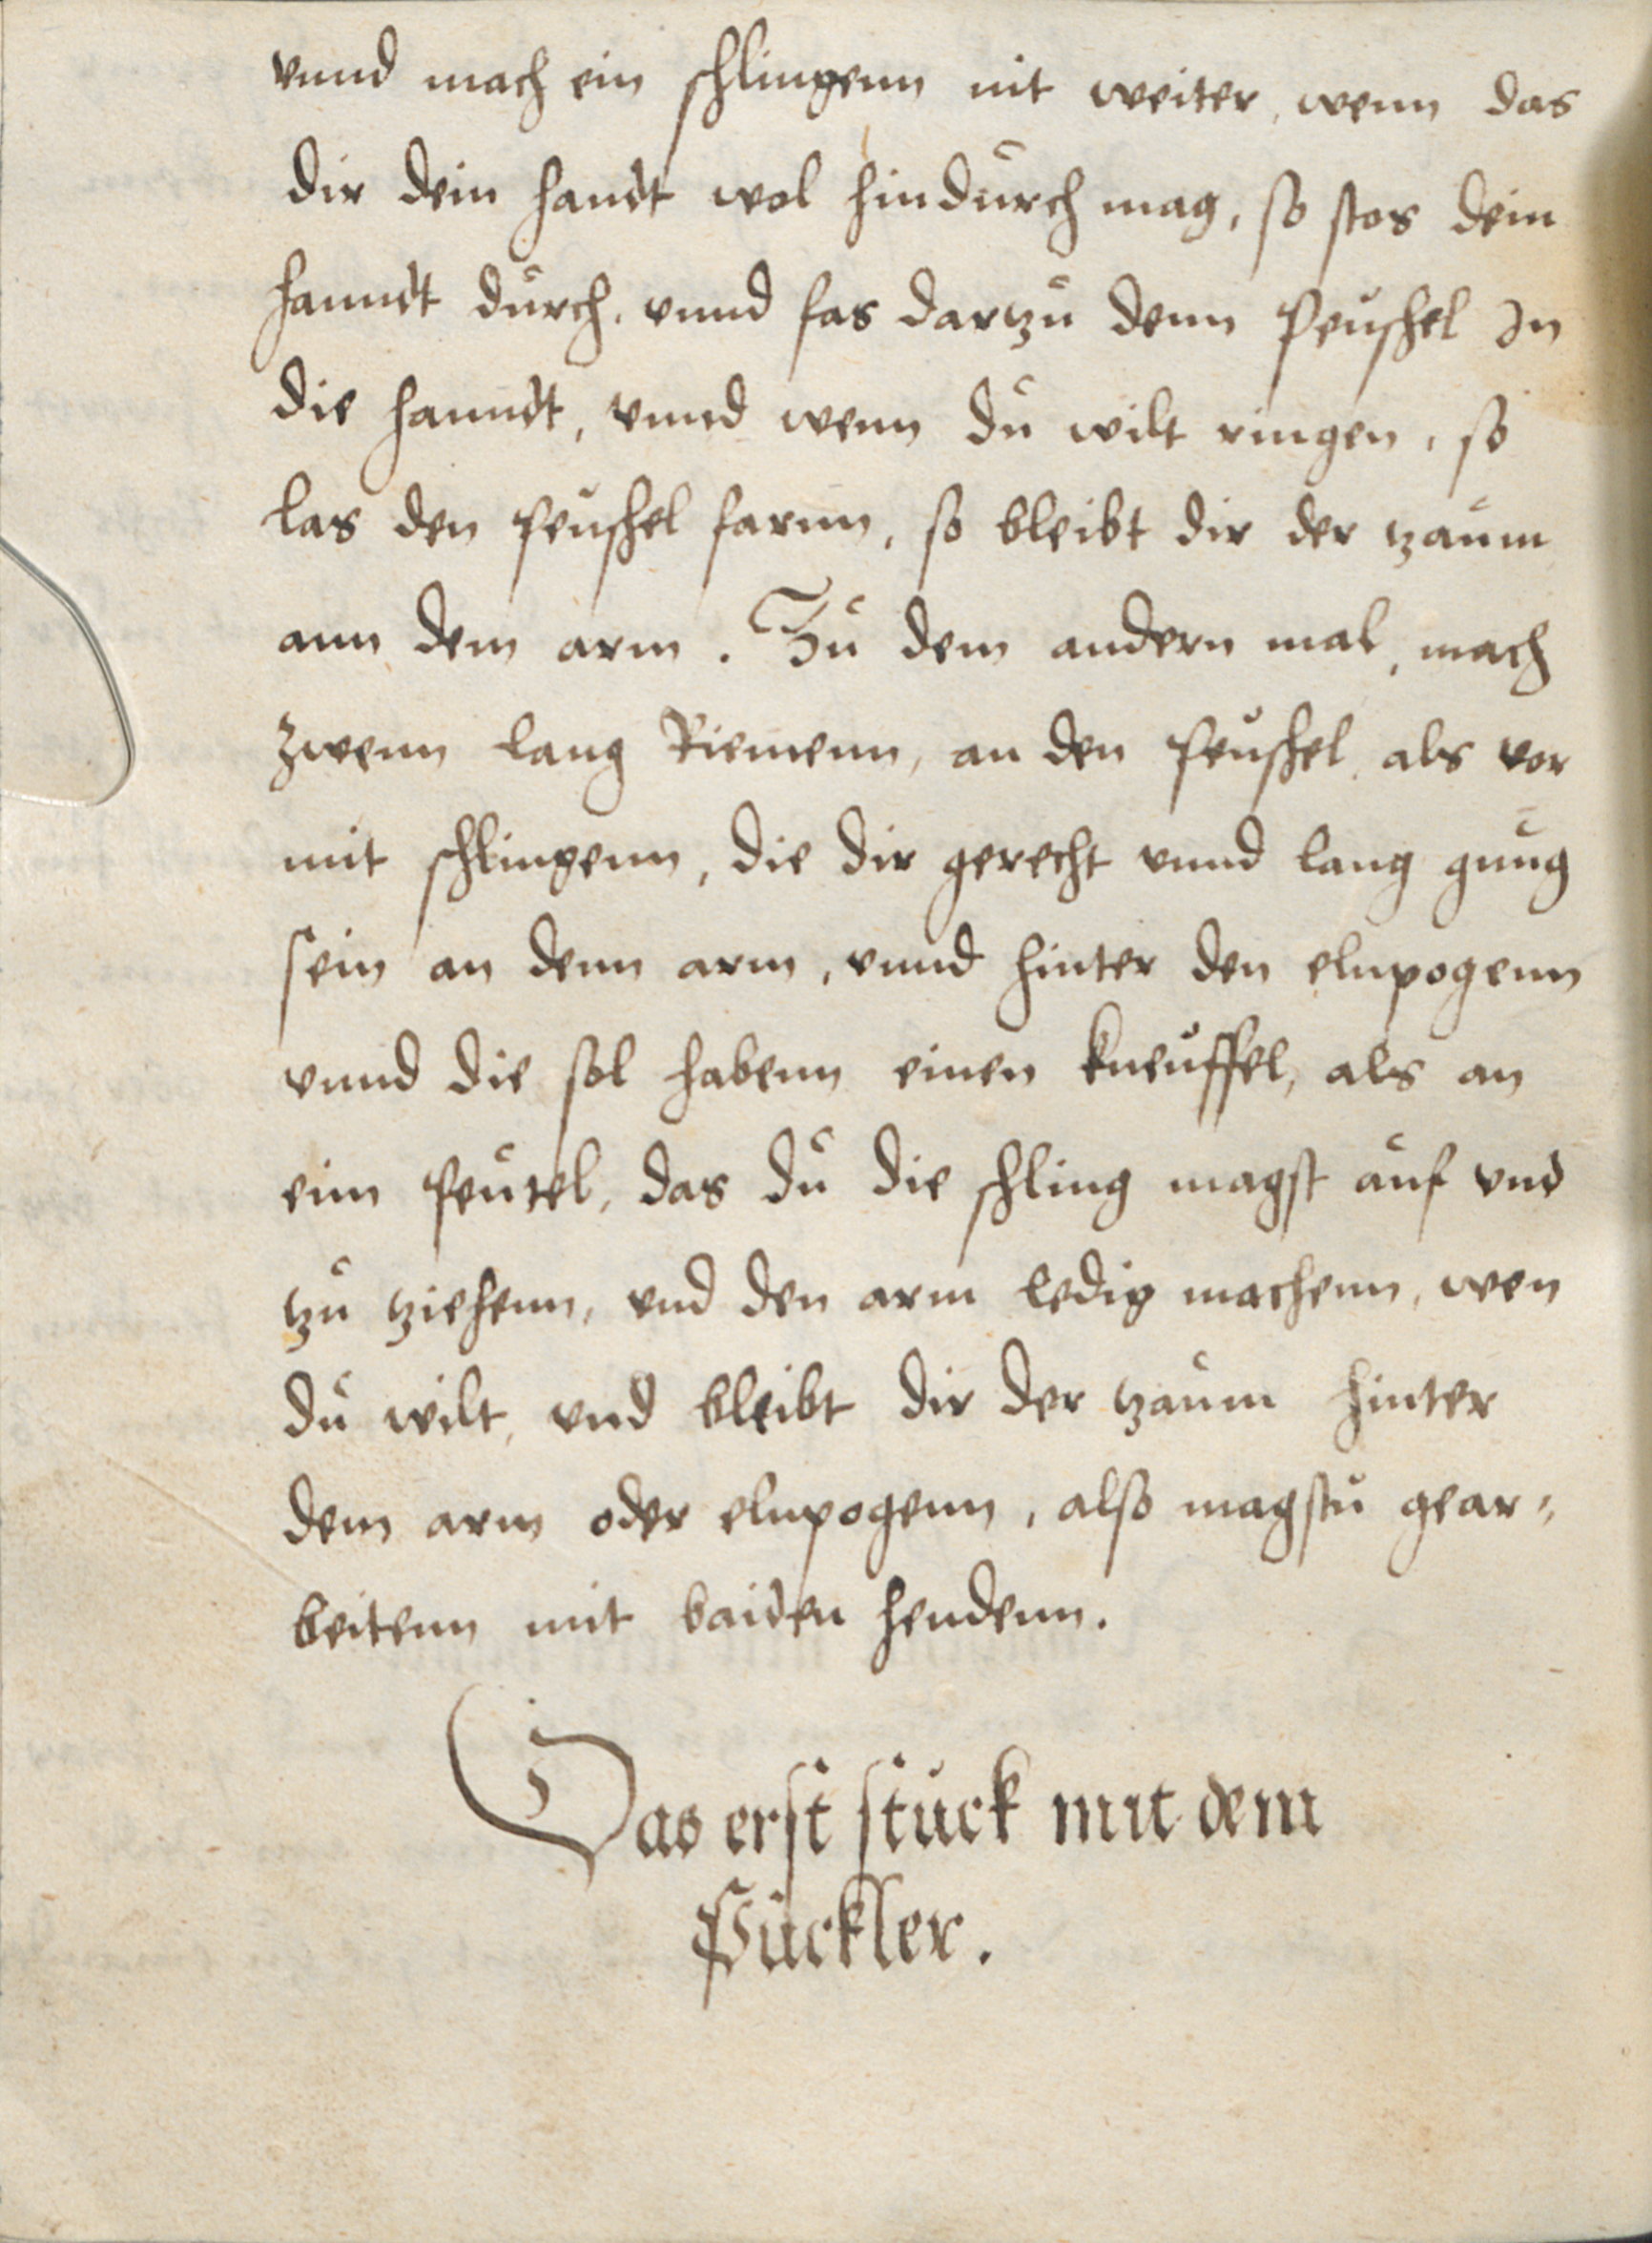 vnnd mach ein schlingenn nit weiter, wenn das
dir dein handt wol hindurch mag, so stos dein
hanndt durch, vnnd fas dartzu denn Peuschel In
die hanndt, vnnd wenn du wilt ringen, so
las den peuschel farnn, so bleibt dir der tzaum
ann dem arm. Zu dem andern mal, mach
zwenn lang Riemenn, an den peuschel, als vor
mit schlingenn, die dir gerecht vnnd lang gnug
sein an denn arm, vnnd hinter den elnpogenn
vnnd die sol habenn einen kneuffel, als an
eim peutel, das du die schling magst auf vnd
tzu tziehenn, vnd den arm ledig machenn, wen
du wilt, vnd bleibt dir der tzaum hinter
dem arm oder elnpogenn, also magstu gear=
beitenn mit baiden hendenn.
Das erst stuck mit dem
Puckler.